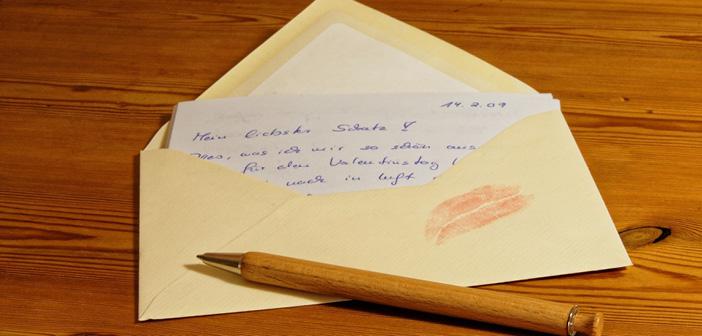 14.2.09
Mein liebster Schatz
Alles, was ich mir so schön aus
für den Valentinstag
nach in Luft